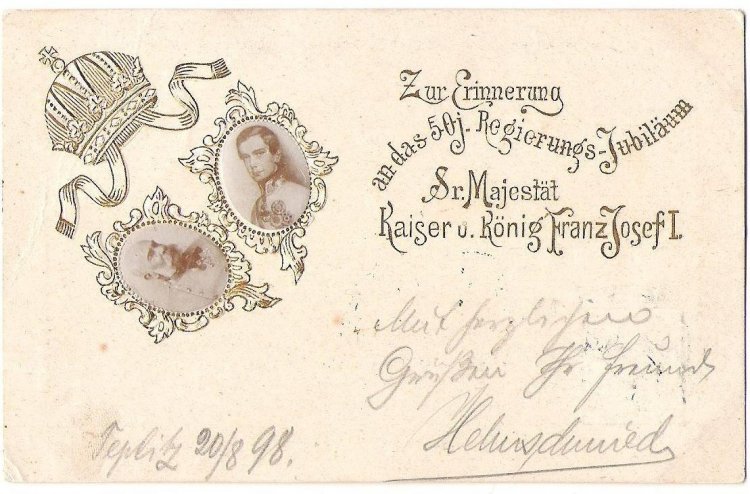 Zur Erinnerung
an das 50j. Regierungs-Jubiläum
Sr. Majestät
Kaiser u. König Franz Josef I.
Mit herzlichen
Grüßen Ihr Freund
Teplitz 20/8 98.